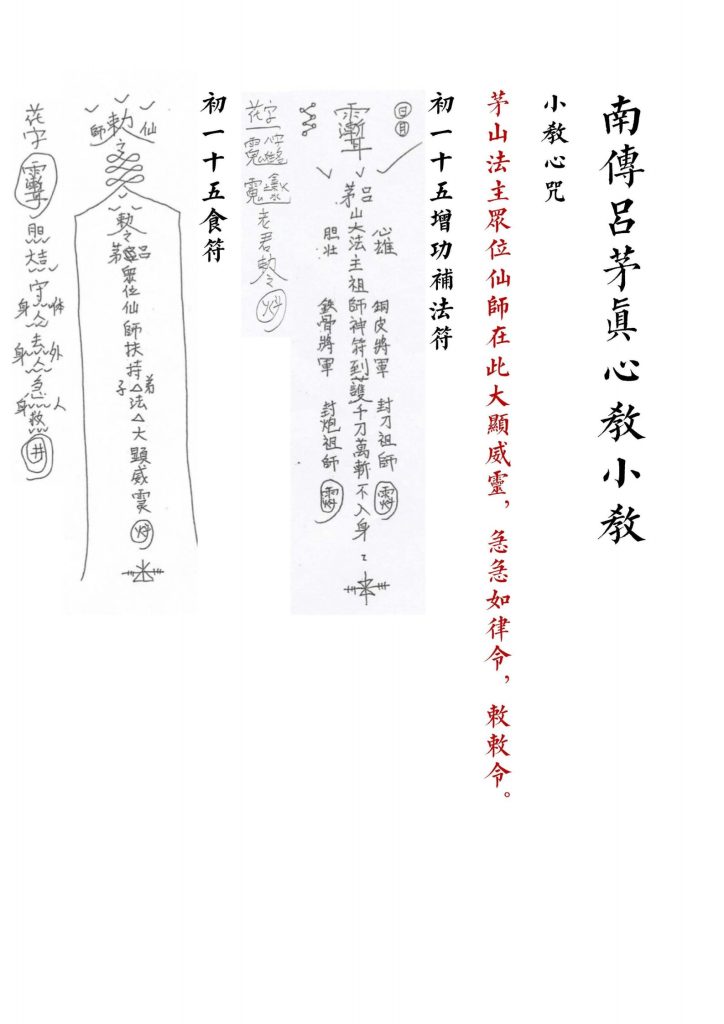 南傳呂茅眞心教小教
小教心咒
茅山法主眾位仙師在此大顯威靈，急急如律令，敕敕令。
初一十五增功補法符
日月
心雄 銅皮將軍 封刀祖師
呂
茅山大法主祖師神符到護千刀萬斬不入身
胆壯 鉄骨將軍 封炮祖師
花字
老君勅令
初一十五食符
仙
師
勅令
勅令
呂
茅眾位仙師扶持弟子△法△大顯威灵
花字
胆大吉
守体身
去外身
急救人身
井